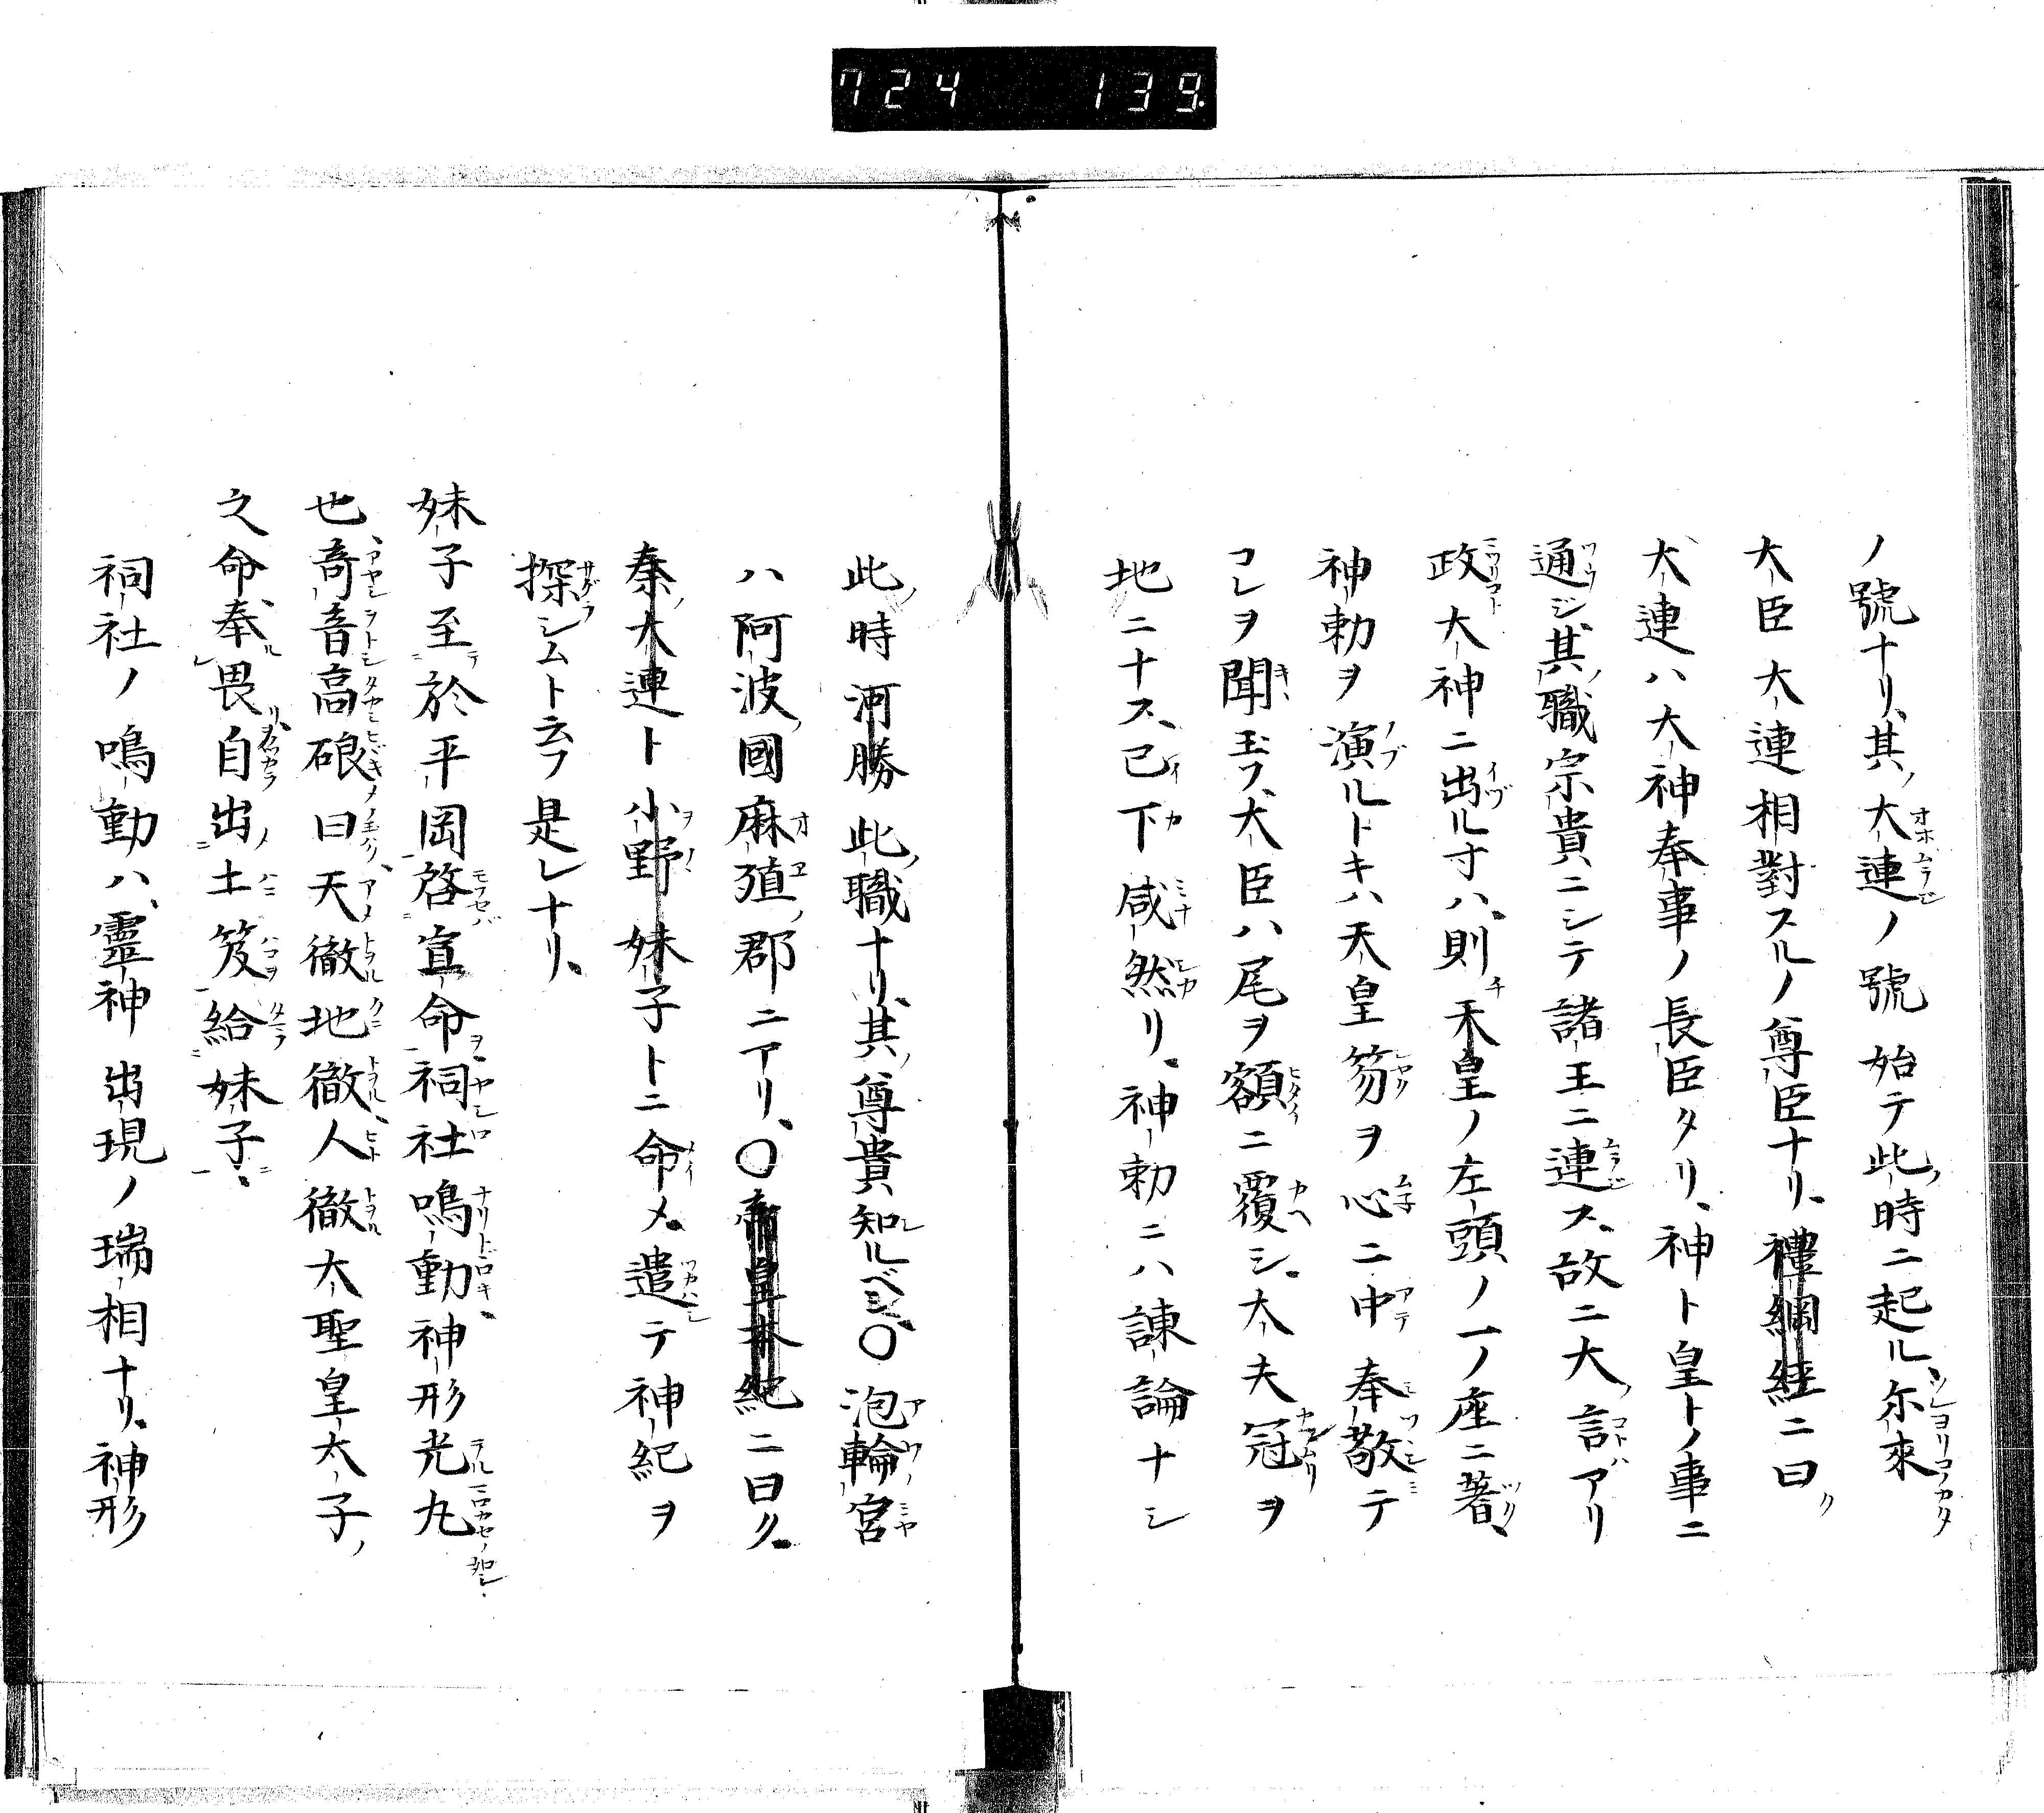 724 139
ノ號ナリ、其ノ大連ノ號始テ此ノ時ニ起ル、尓來
大臣大連相對スルノ尊臣ナリ、禮綱経ニ曰ク
大連ハ大神奉事ノ長臣タリ、神ト皇トノ事ニ
通ジ、其ノ職宗貴ニシテ諸王ニ連ス、故ニ大ノ言アリ
政大神ニ出ル寸ハ、則チ天皇ノ左頭ノ一ノ座ニ著ク、
神勅ヲ演ルトキハ天皇笏ヲ心ニ中テ奉敬テ
コレヲ聞玉フ、大臣ハ尾ヲ額ニ覆シ、大夫冠ヲ
地ニナス、已下咸然リ、神勅ニハ諌論ナシ
此ノ時河勝此ノ職ナリ、其ノ尊貴知ルベシ、〇泡輪宮
ハ阿波ノ國麻殖ノ郡ニアリ、〇帝皇本紀ニ曰ク、
秦ノ大連ト小野ノ妹子トニ命メ、遣テ神紀ヲ
探シムト云フ是レナリ、
妹子至テ於平岡啓宣命ヲ、祠社鳴動神形光丸
也、奇音高硠曰天徹地徹人徹大聖皇太子ノ
之命、奉ル畏自出土ノ笈給妹子ニ、
祠社ノ鳴動ハ、靈神出現ノ瑞相ナリ、神形